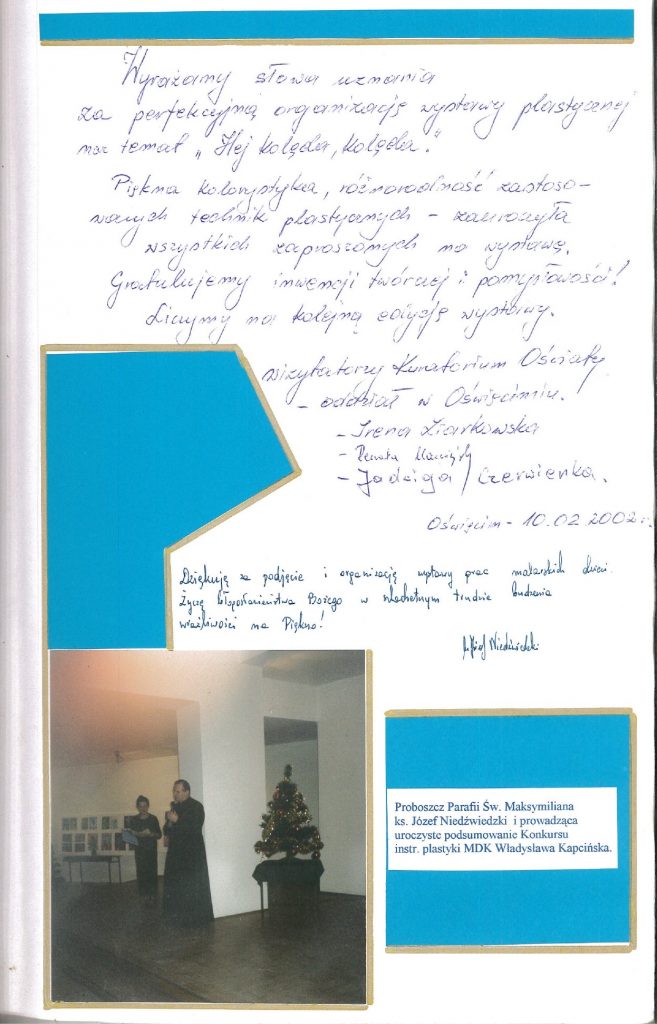 Wyrażamy słowa uznania
za perfekcyjną organizację wystawy plastycznej
na temat „Hej kolęda, kolęda."
Piękna kolorystyka, różnorodność zastoso-
wanych technik plastycznych – zauroczyła
wszystkich zaproszonych na wystawę.
Gratulujemy inwencji twórczej i pomysłowości!
Liczymy na kolejną edycję wystawy.
wizytatorzy Kuratorium Oświaty
– oddział w Oświęcimiu.
- Irena Ziarkowska
- Renata
- Jadwiga Czerwienka.
Oświęcim - 10.02.2002 r.
Dziękuję za podjęcie i organizację wystawy prac malarskich dzieci.
Życzę błogosławieństwa Bożego w szlachetnym trudzie budzenia
wrażliwości na Piękno!
ks. Józef Niedźwiedzki
Proboszcz Parafii Św. Maksymiliana
ks. Józef Niedźwiedzki i prowadząca
uroczyste podsumowanie Konkursu
instr. plastyki MDK Władysława Kapcińska.